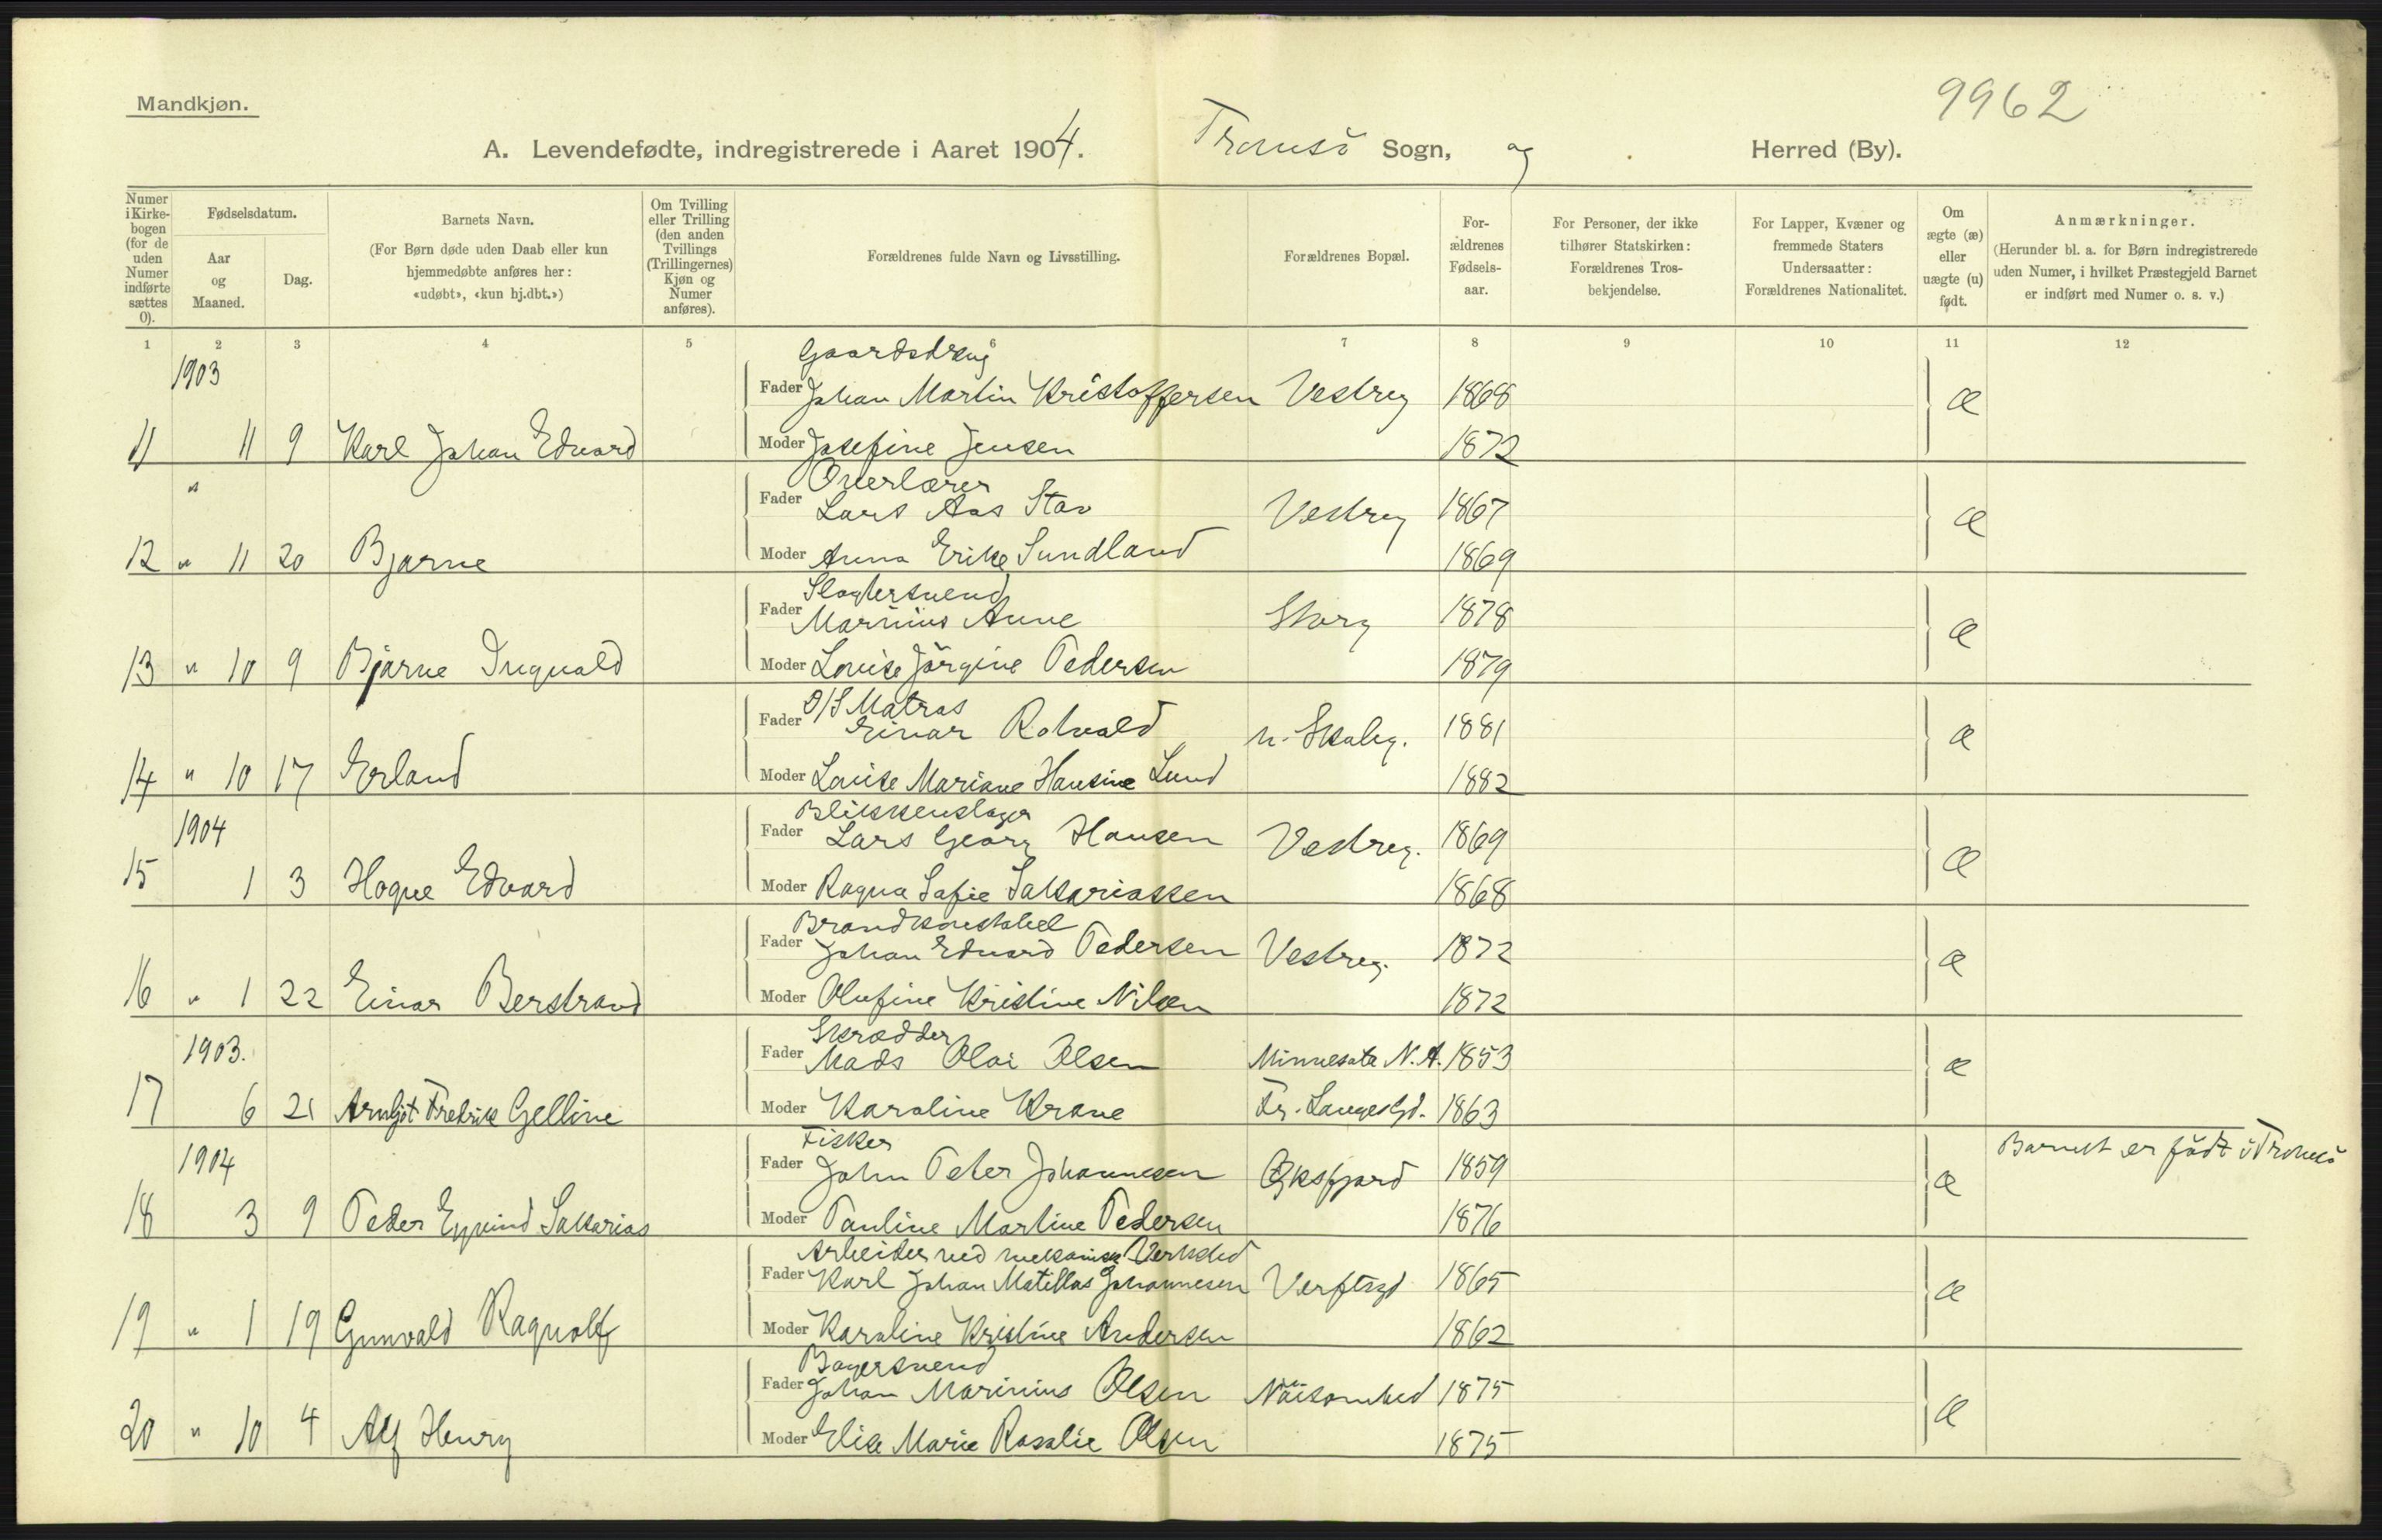 9962
Mandkjøn.
A. Levendefødte, indregistrerede i Aaret 1904. Tromsö Sogn, og Herred (By).
Numer i Kirkebogen (for de uden Numer indførte sættes 0).
Fødselsdatum.
Aar og Maaned.
Dag.
Barnets Navn.
(For Børn døde uden Daab eller kun hjemmedøbte anføres her: «udøbt», «kun hj.dbt.»)
Om Tvilling eller Trilling (den anden Tvillings (Trillingernes) Kjøn og Numer anføres).
Forældrenes fulde Navn og Livsstilling.
Forældrenes Bopæl.
Forældrenes Fødselsaar.
For Personer, der ikke tilhører Statskirken: Forældrenes Trosbekjendelse.
For Lapper, Kvæner og fremmede Staters Undersaatter: Forældrenes Nationalitet.
Om ægte (æ) eller uægte (u) født.
Anmærkninger.
(Herunder bl. a. for Børn indregistrerede uden Numer, i hvilket Præstegjeld Barnet er indført med Numer o. s. v.)
1 2 3 4 5 6 7 8 9 10 11 12
1903 Gaardsdreng
Fader Johan Martin Kristoffersen Vestreg 1868 æ
11 11 9 Karl Johan Edvard Moder Josefine Jensen 1872
" Overlærer
Fader Lars Aas Stav Vestreg 1867 æ
12 " 11 20 Bjarne Moder Anna Erike Sundland 1869
Slagtersvend
Fader Marinius Aune Storg 1878 æ
13 " 10 9 Bjarne Ingvald Moder Louise Jörgine Pedersen 1879
D/S Matros
Fader Einar Rolvald n. Skaleg. 1881 æ
14 " 10 17 Erland Moder Louise Mariane Hansine Lund 1882
1904 Blikkenslager
Fader Lars Georg Hansen Vestreg. 1869 æ
15 1 3 Hogne Edvard Moder Ragna Sofie Sakariassen 1868
Brandkonstabel
Fader Johan Edvard Pedersen Vestreg. 1872 æ
16 " 1 22 Einar Berstrand Moder Olufine Kristine Nilsen 1872
1903. Skrædder
Fader Mads Olai Olsen Minnesota N. A. 1853 æ
17 6 21 Arnljot Fredrik Gelline Moder Karoline Krane Fr. Langesgd. 1863
1904 Fisker
Fader John Peter Johannesen Øksfjord 1859 æ Barnet er födt i Tromsö
18 3 9 Peder Eyvind Sakarias Moder Pauline Martine Pedersen 1876
Arbeider ved mekanisk Verksted
Fader Karl Johan Matillas Johannesen Verftsgd 1865 æ
19 " 1 19 Gunvald Ragnolf Moder Karoline Kristine Andersen 1862
Bagersvend
Fader Johan Marinius Olsen 1875 æ
20 " 10 4 Alf Henry Moder Elise Marie Rosalie Olsen 1875